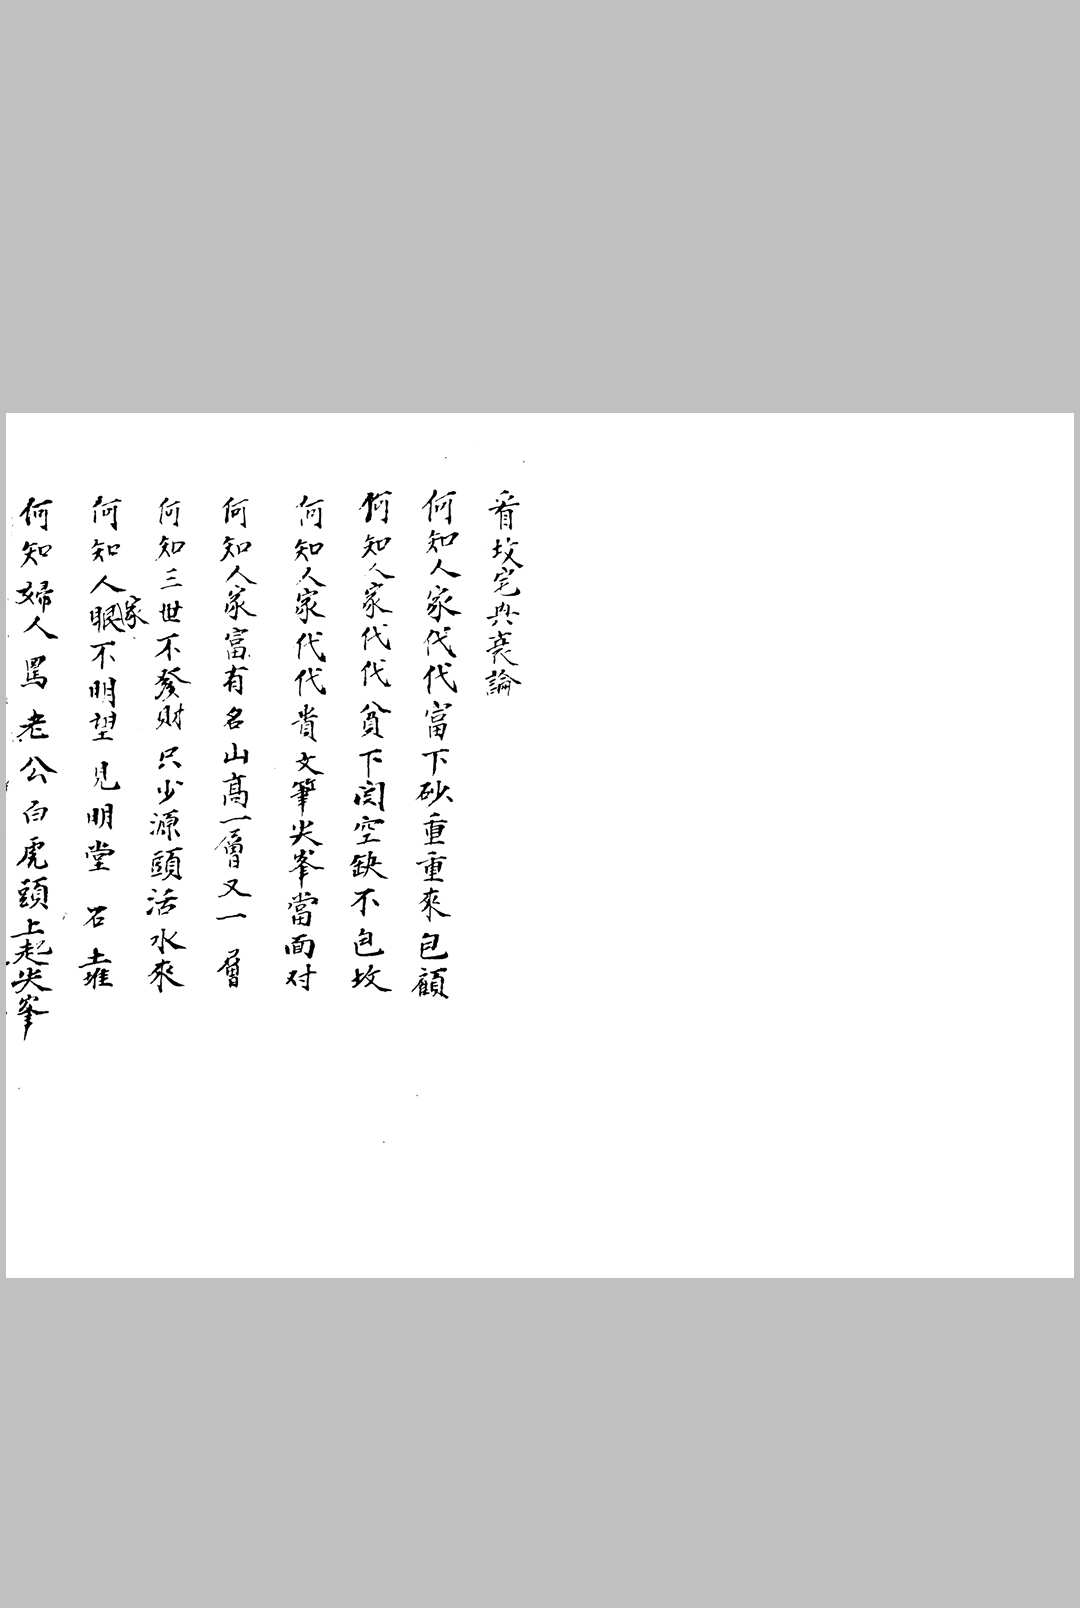 看坟宅興衰論
何知人家代代富下砂重重來包顧
何知人家代代貧下関空缺不包坟
何知人家代代貴文筆尖峯當面对
何知人家富有名山髙一層又一層
何知三世不發財只少源頭活水來
何知人家眼不明望見明堂石土堆
何知婦人罵老公白虎頭上起尖峯